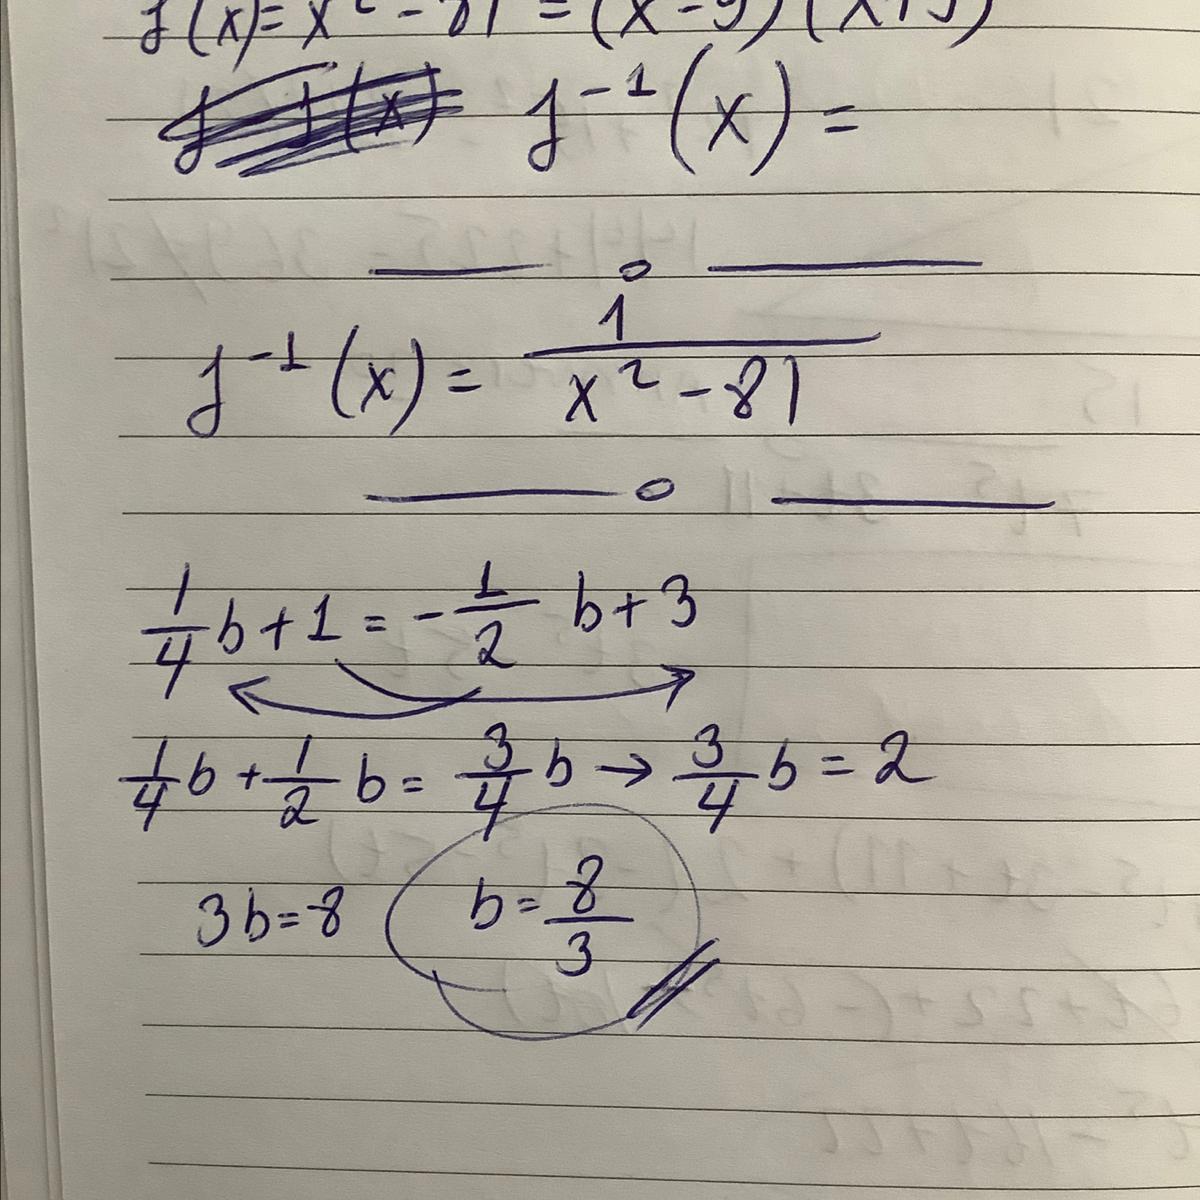 f(x)=x² - 81 = (x-9)(x+9)
f⁻¹(x) =
1
f⁻¹(x) = ―――
x² - 81
1/4 b + 1 = - 1/2 b + 3
1/4 b + 1/2 b = 3/4 b → 3/4 b = 2
3b = 8 b = 8/3